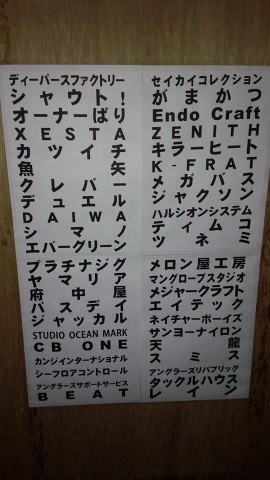 ディーパースファクトリー
シャウト!
オーナーばり
XESTA
カツイチ
魚矢
クレバー
デュエル
DAIWA
シマノ
エバーグリーン
プラチナジグ
ヤマリア
府中屋
バスデイ
ジャッカル
STUDIO OCEAN MARK
CB ONE
カンジインターナショナル
シーフロアコントロール
アングラーズサポートサービス
BEAT
セイカイコレクション
がまかつ
Endo Craft
ZENITH
キラーヒート
K-FRAT
メガバス
ジャクソン
ハルシオンシステム
ティムコ
ツネミ
メロン屋工房
マングローブスタジオ
メジャークラフト
エイテック
ネイチャーボーイズ
サンヨーナイロン
天龍
スミス
アングラーズリパブリック
タックルハウス
レイン